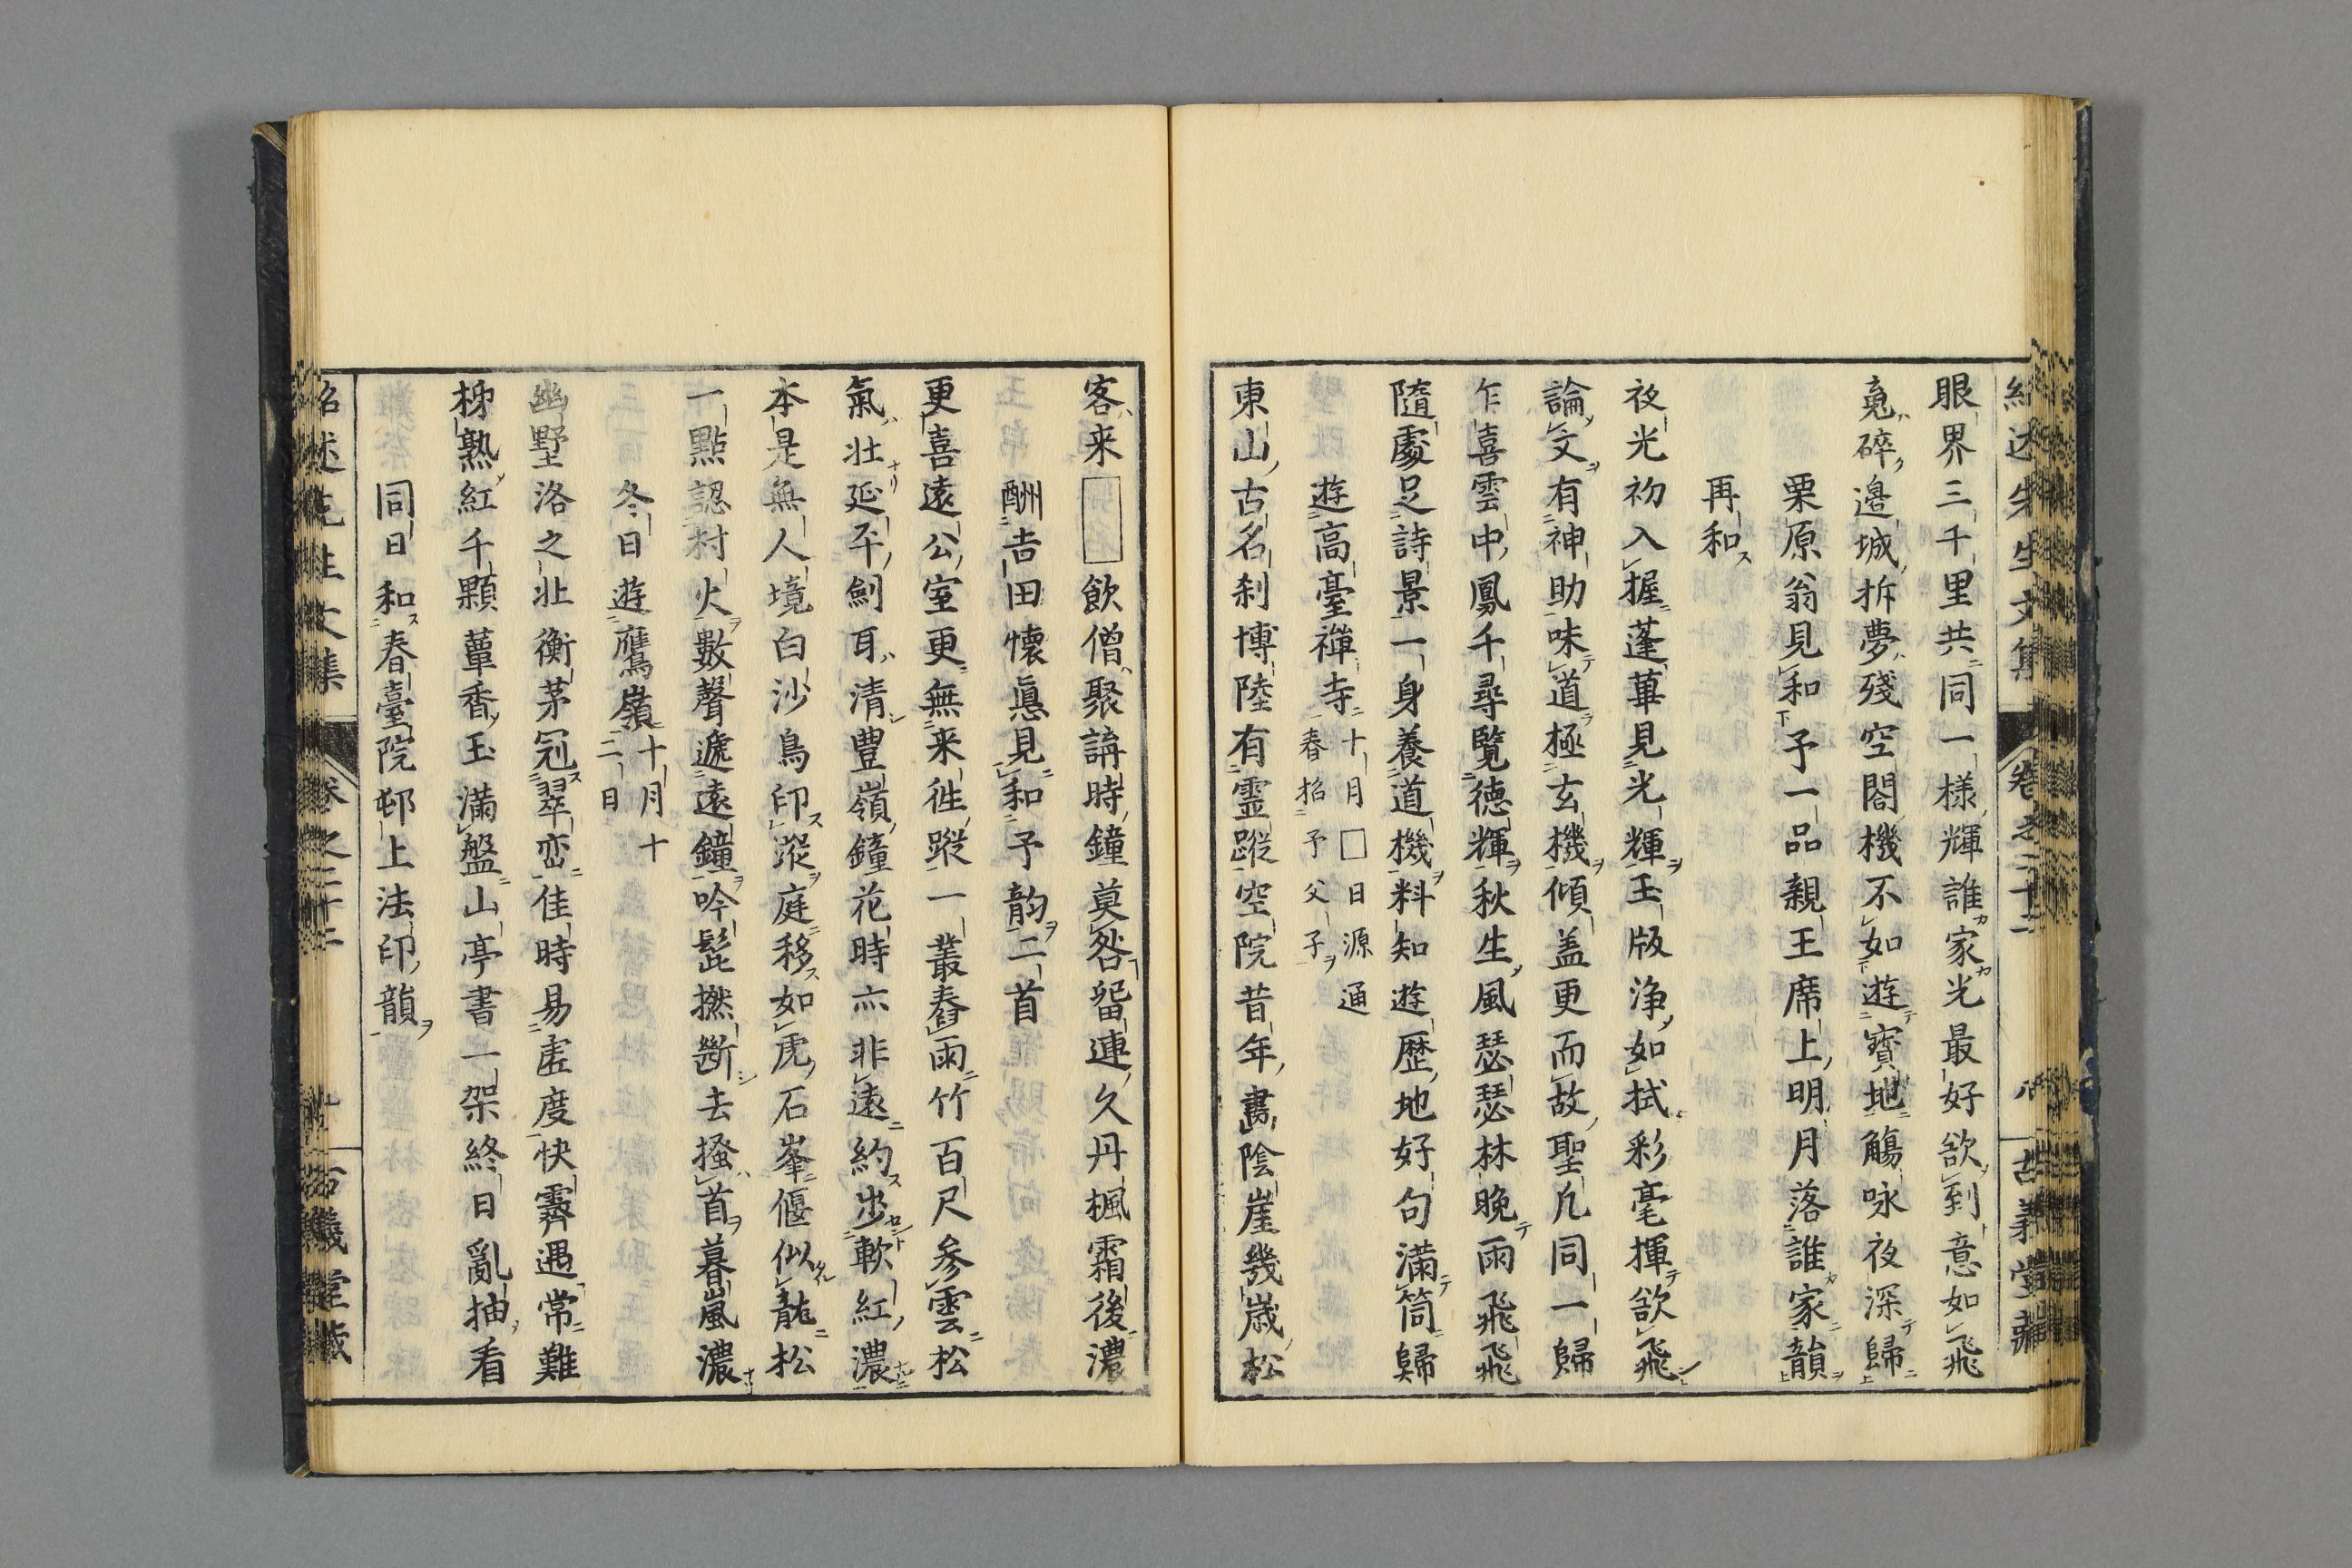 紹述先生文集 卷之二十二 古義堂藏
眼界三千里共同一様輝誰家光最好欲到意如飛
寛碎邉城拆夢殘空閤機不如遊寳地觴咏夜深歸
栗原翁見和予一品親王席上明月落誰家韻
再和
夜光初入握蓬蓽見光輝玉版浄如拭彩毫揮欲飛
論文有神助味道極玄機傾盖更而故聖凢同一歸
乍喜雲中鳳千尋覽德輝秋生風瑟瑟林晚雨飛飛
隨處足詩景一身養道機料知遊歴地好句滿筒歸
遊高臺禪寺十月□日源通春招予父子
東山古名刹博陸有霊蹤空院昔年畵陰崖幾歳松
客来□飲僧聚講時鐘莫咎留連久丹楓霜後濃
酬吉田懷德見和予韵二首
更喜遠公室更無来徃蹤一叢舂雨竹百尺參雲松
氣壮延平劍耳清豐嶺鐘花時亦非遠約步軟紅濃
本是無人境白沙鳥印蹤庭移如虎石峯偃似龍松
一點認村火數聲遞遠鐘吟髭撚斷去搔首暮嵐濃
冬日遊鷹嶺十月十二日
幽墅洛之北衡茅冠翠巒佳時易虚度快霽遇常難
柹熟紅千顆蕈香玉滿盤山亭書一架終日亂抽看
同日和春臺院邨上法印韻
紹述先生文集 卷之二十二 古義堂藏